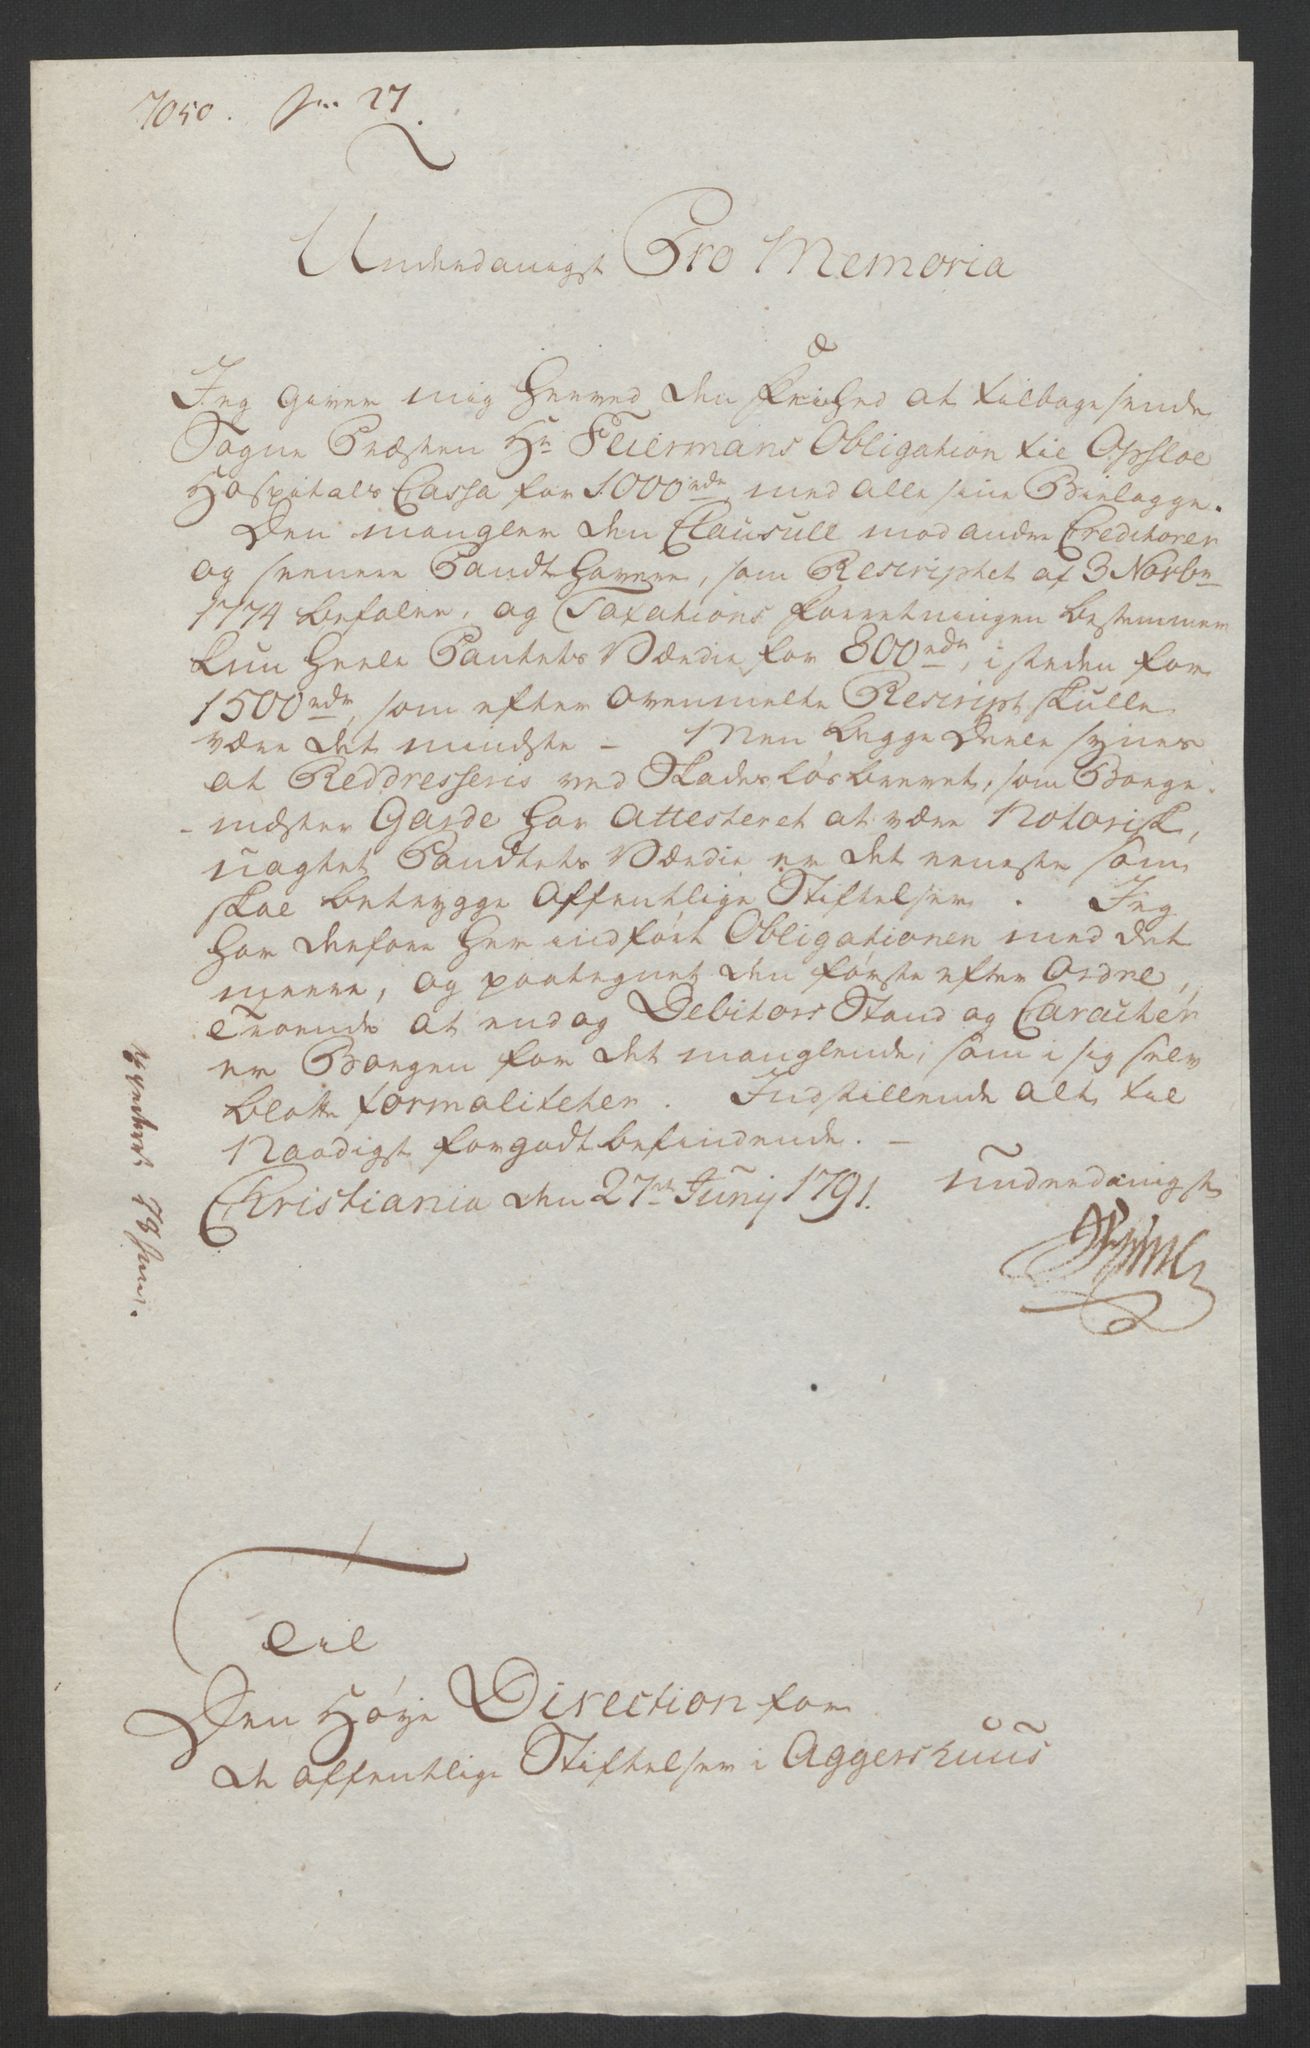 7050. 27.
Underdanigst Pro Memoria
Jeg giver mig herved den Friehed at tilbagesende
Sogne Præsten Hr Feiermans Obligation til Opsloe
Hospitals Cassa for 1000 rdr med alle sine Bielagge.
Den mangler den Clausull mod andre Creditorer
og seenere Pandthavere, som Rescriptet af 3 Novbr
1774 befaler, og Taxations Forretningen bestemmer
kun heele Pantets Værdie for 800 rdr, i steden for
1500 rdr, som efter ovenmelte Rescript skulle
være det mindste - Men begge Deele synes
at Reddresseris ved Skadesløsbrevet, som Borge-
- mester Garde har Attesteret at være Notorisk,
uagtet Pandtets Værdie er det eneste som
skal betrygge offentlige Stiftelser. Jeg
har derfore her indført Obligationen med det
meere, og paategnet den første efter Ordre,
troende at endog Debitors Stand og Carachter
er Borgen for det manglende, som i sig selv
blotte formaliteter. Indstillende alt til
Naadigst forgodtbefindende. -
Christiania den 27de Junij 1791. underdanigst
Til
Den Høye Direction for
de offentlige Stiftelser i Aggershuus